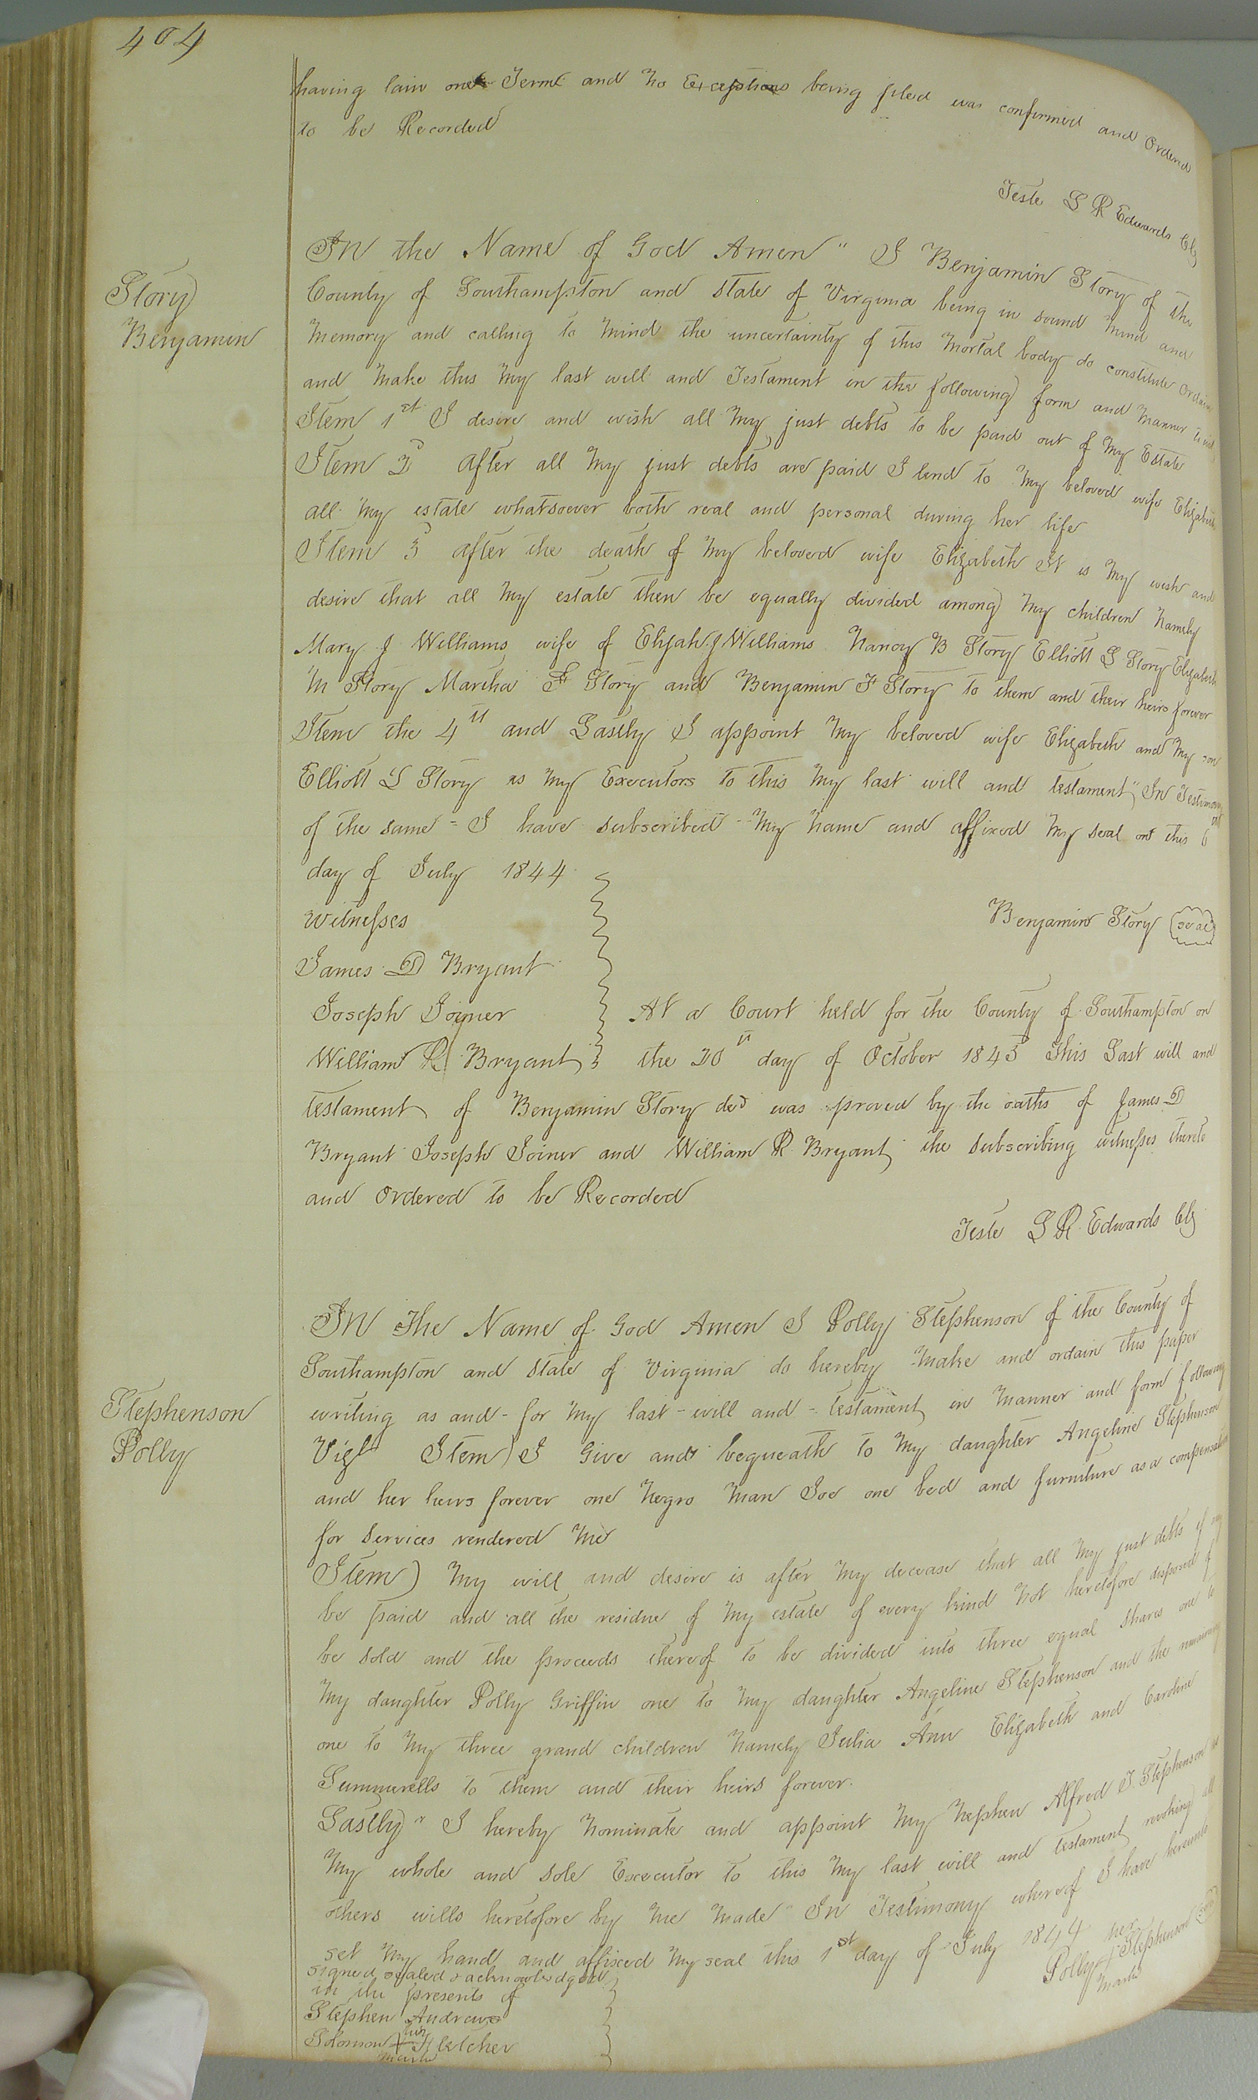 404
having lain one Term and no Exceptions being filed was confirmed and Ordered
to be Recorded
Teste L R Edwards Clk
Story
Benjamin
In the Name of God Amen" I Benjamin Story of the
County of Southampton and state of Virginia being in sound mind and
memory and calling to mind the uncertainty of this mortal body do constitute ordain
and make this my last will and Testament in the following form and manner to wit
Item 1st I desire and wish all my just debts to be paid out of my Estate
Item 2d After all my just debts are paid I lend to my beloved wife Elizabeth
all my estate whatsoever both real and personal during her life
Item 3d after the death of my beloved wife Elizabeth It is my wish and
desire that all my estate then be equally divided among my children namely
Mary J Williams wife of Elijah J Williams Nancy B Story Elliott L Story Elizabeth
M Story Martha F Story and Benjamin F Story to them and their heirs forever
Item the 4th and Lastly I appoint my beloved wife Elizabeth and my son
Elliott L Story as my Executors to this my last will and testament, "In Testimony
of the same - I have subscribed my name and affixed my seal on this 6th
day of July 1844
Witnesses
Benjamin Story seal
James D Bryant
Joseph Joiner
William R Bryant
At a Court held for the County of Southampton on
the 20th day of October 1845 This Last will and
testament of Benjamin Story decd was proved by the oaths of James D
Bryant Joseph Joiner and William R Bryant the subscribing witnesses thereto
and Ordered to be Recorded
Teste L R Edwards Clk
Stephenson
Polly
In The Name of God Amen I Polly Stephenson of the County of
Southampton and State of Virginia do hereby make and ordain this paper
writing as and - for my last - will and - testament in manner and form following
Viz Item) I Give and bequeath to my daughter Angeline Stephenson
and her heirs forever one Negro man Joe one bed and furniture as a compensation
for services rendered me
Item) My will and desire is after my decease that all my just debts if any
be paid and all the residue of my estate of every kind not heretofore disposed of
be sold and the proceeds thereof to be divided into three equal shares one to
my daughter Polly Griffin one to my daughter Angeline Stephenson and the remaining
one to my three grand children namely Julia Ann Elizabeth and Caroline
Summerells to them and their heirs forever.
Lastly" I hereby nominate and appoint my nephew Alfred J. Stephenson as
my whole and sole Executor to this my last will and testament revoking all
others wills heretofore by me made" In Testimony whereof I have hereunto
set my hand and affixed my seal this 1st day of July 1844
her
Polly Stephenson seal
mark
signed sealed & acknowledged
in the presents of
Stephen Andrews
his
Solomon + Fletcher
mark